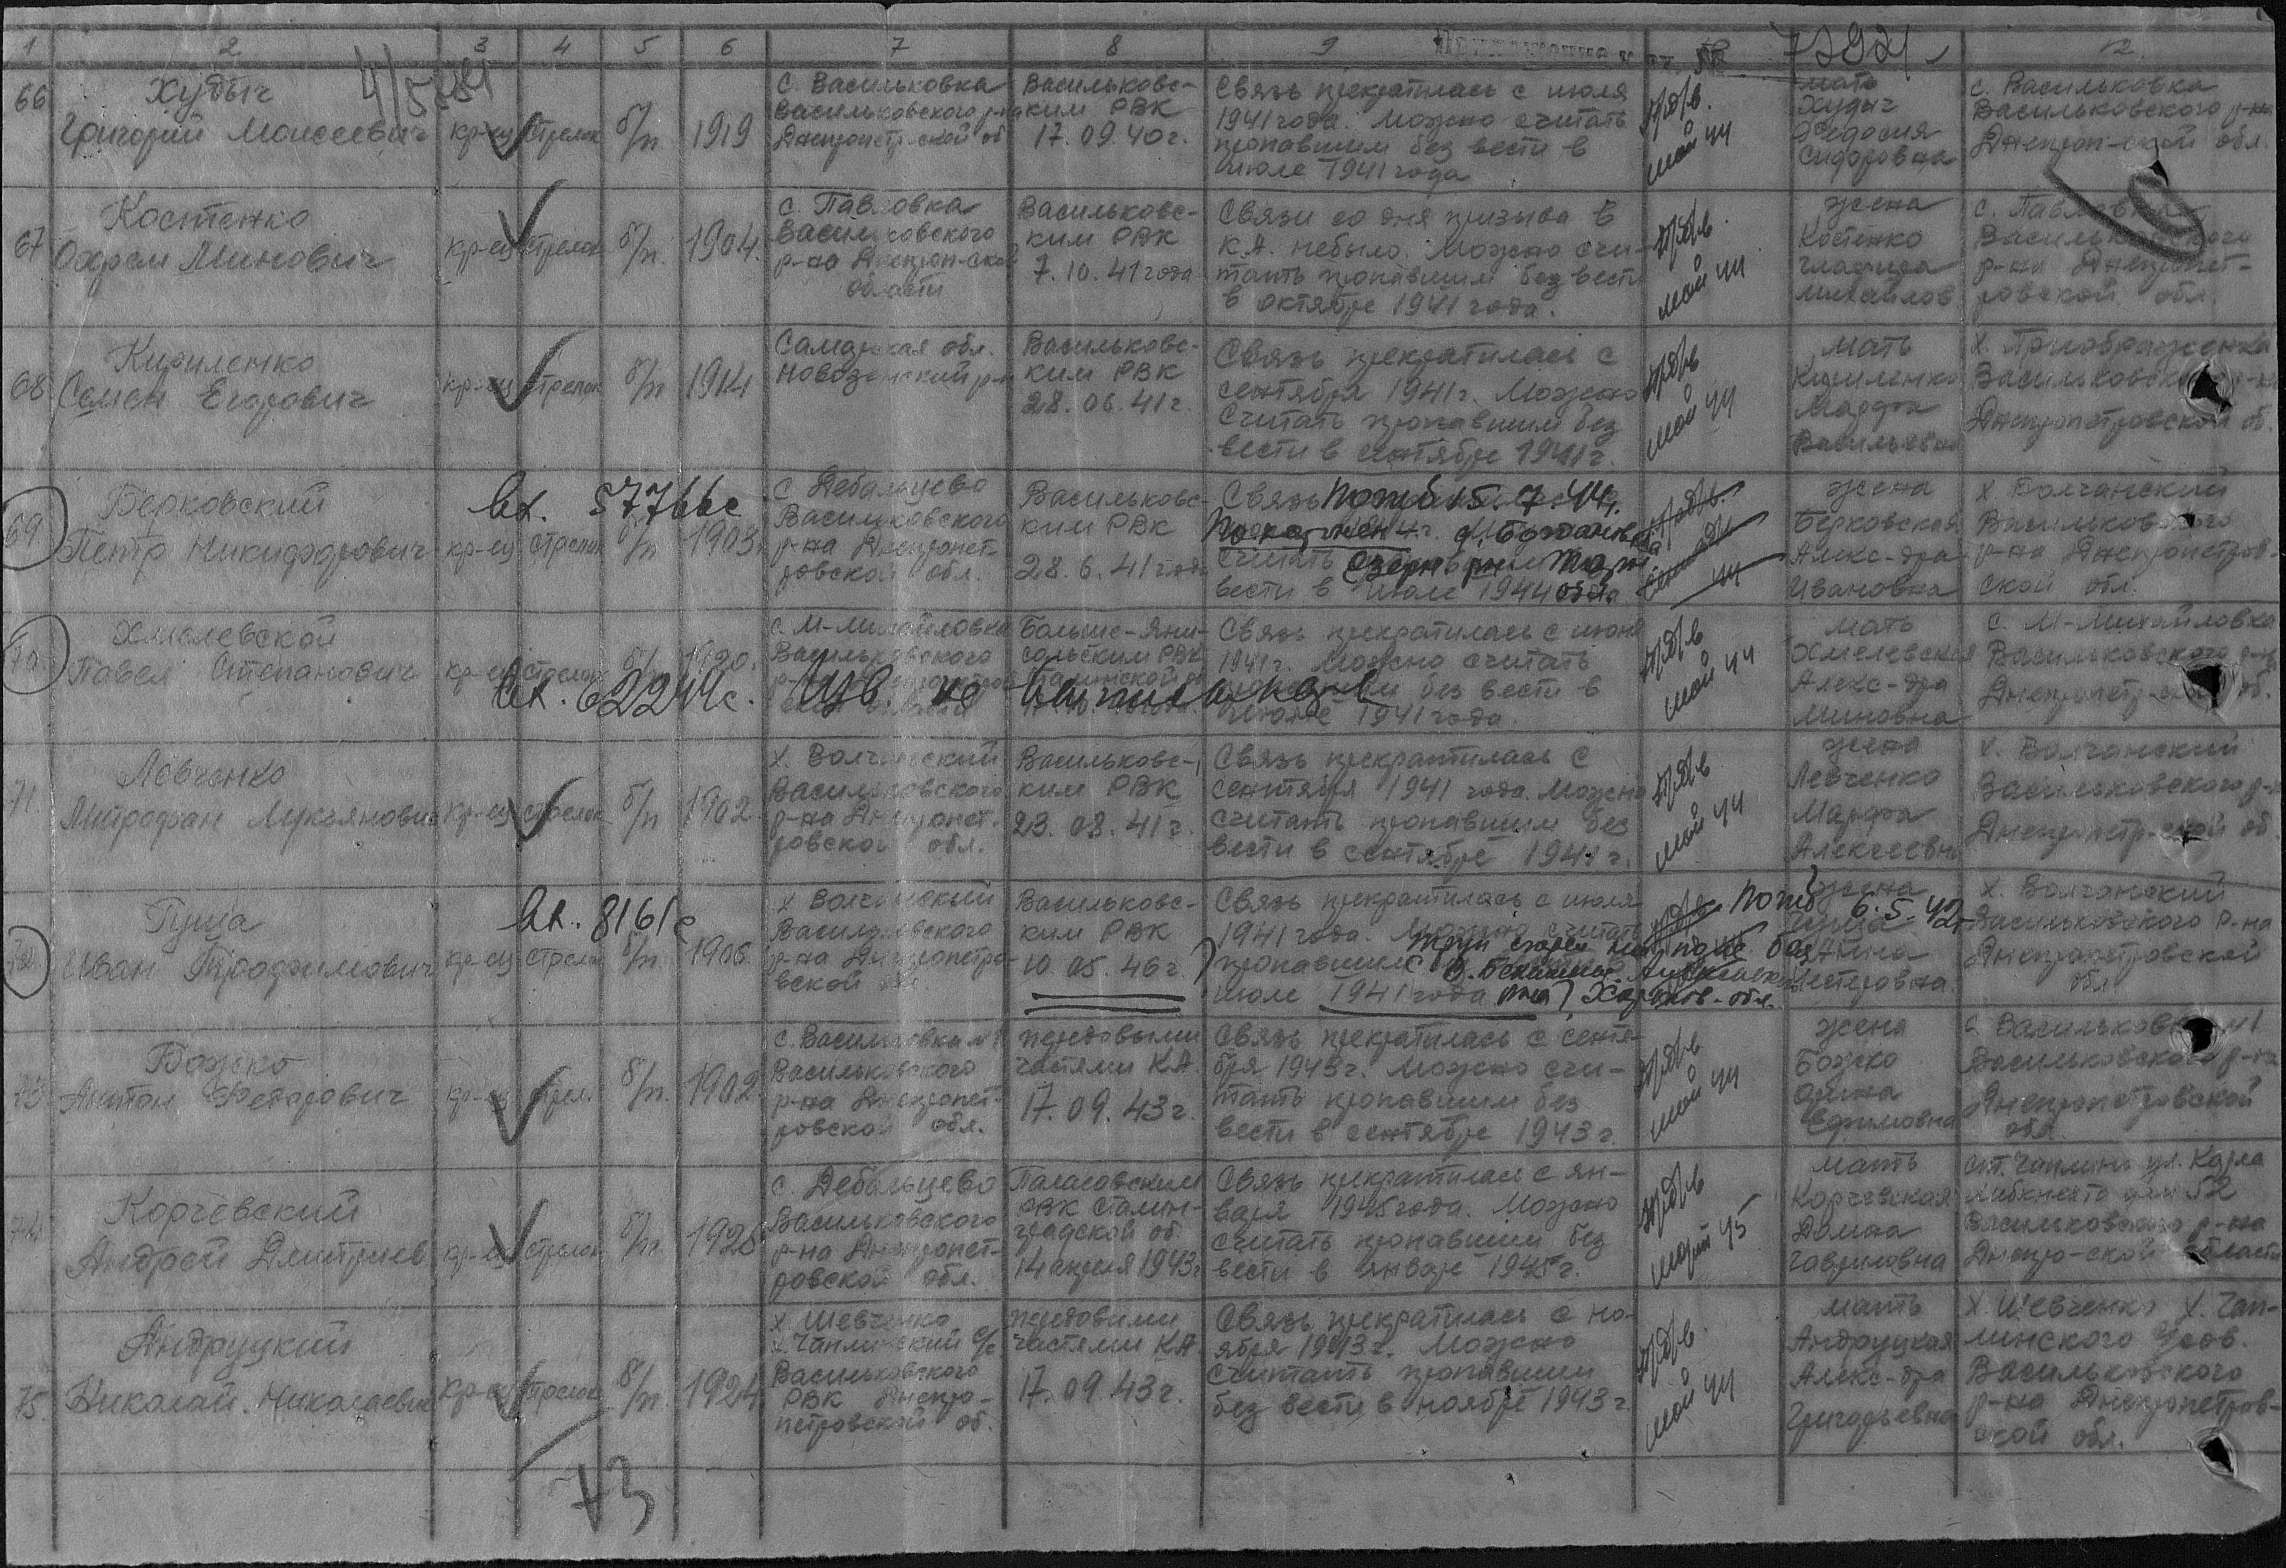 1 2 3 4 5 6 7 8 9 12
7292
66
Худыч
Григорий Моисеевич
кр-ец стрелок б/п 1919
с. Васильковка
Васильковского р-на
Днепропетр-ской об.
Васильковс-
ким РВК
17.09.40г.
Связь прекратилась с июля
1941 года. Можно считать
пропавшим без вести в
июле 1941 года
май 44
мать
Худыч
Федосия
Сидоровна
с. Васильковка
Васильковского р-на
Днепроп-ской обл.
67
Костенко
Охрем Минович
кр-ец стрелок б/п. 1904.
с. Павловка
Васильковского
р-на Днепроп-ской
области
Васильковс-
ким РВК
7.10.41 года
Связи со дня призыва в
К.А. небыло. Можно счи-
тать пропавшим без вести
в октябре 1941 года.
май 44
жена
Костенко
Михайлов
с. Павловка
Васильковского
р-на Днепропет-
ровской обл.
68
Кириленко
Семен Егорович
кр-ец стрелок б/п 1914
Самарская обл.
Новоузенский р-н
Васильковс-
ким РВК
28.06.41г.
Связь прекратилась с
сентября 1941г. Можно
считать пропавшим без
вести в сентябре 1941г.
май 44
мать
Кириленко
Марфа
Васильевна
Васильковского р-на
Днепропетровской об.
69
Берковский
Петр Никифорович
Вх. 57766с
кр-ец стрелок б/п 1903
с. Дебальцево
Васильковского
р-на Днепропет-
ровской обл.
Васильковс-
ким РВК
28.6.41 года
Связь погиб 15.7.44.
Похоронен
считать
вести в июле 1944
44
жена
Берковская
Алекс-дра
Ивановна
х. Волчанский
Васильковского
р-на Днепропетров-
ской обл.
70
Хмелевской
Павел Степанович
кр-ец стрелок б/п 1920.
Вх. 62244с. Изв. не
с. М-Михайловка
Васильковского
Больше-Яни-
сольским РВК
Связь прекратилась с июня
1941г. Можно считать
без вести в
1941 года.
май 44
мать
Хмелевская
Алекс-дра
Миновна
с. М-Михайловка
Васильковского р-на
Днепропетр-ской об.
71.
Левченко
Митрофан Лукьянович
кр-ец стрелок б/п 1902
х. Волчанский
Васильковского
р-на Днепропет-
ровской обл.
Васильковс-
ким РВК
23.08.41г.
Связь прекратилась с
сентября 1941 года. Можно
считать пропавшим без
вести в сентябре 1941г.
май 44
жена
Левченко
Марфа
Алексеевна
х. Волчанский
Васильковского р-на
Днепропетр-ской об.
72
Гуща
Иван Трофимович
Вх. 8161с
кр-ец стрелок б/п. 1906
х. Волчанский
Васильковского
р-на Днепропетро-
вской об.
Васильковс-
ким РВК
10.05.46г.
Связь прекратилась с июля
1941 года. Можно считать
пропавшим
июле 1941 года
погиб 6.5.42
Харьков. обл.
жена
Гуща
Нестеровна
х. Волчанский
Васильковского р-на
Днепропетровской
обл.
73
Божко
Антон Федорович
кр-ец стрел. б/п. 1902
с. Васильковка №1
Васильковского
р-на Днепропет-
ровской обл.
передовыми
частями КА
17.09.43г.
Связь прекратилась с сентя-
бря 1943г. Можно счи-
тать пропавшим без
вести в сентябре 1943г.
май 44
жена
Божко
Ефимовна
с. Васильковка №1
Васильковского р-на
Днепропетровской
обл.
74
Корчевский
Андрей Дмитриев
кр-ец стрелок б/п. 1926
с. Дебальцево
Васильковского
р-на Днепропет-
ровской обл.
Паласовским
РВК Сталин-
градской об.
14 апреля 1943г
Связь прекратилась с ян-
варя 1945 года. Можно
считать пропавшим без
вести в январе 1945г.
45
мать
Корчевская
Домна
Гавриловна
ст. Чаплино ул. Карла
Либкнехта дом 52
Васильковского р-на
Днепро-ской области
75.
Андруцкий
Николай Николаевич
кр-ец стрелок б/п. 1924
х. Шевченко
х. Чаплинский с/с
Васильковского
РВК Днепро-
петровской об.
передовыми
частями КА
17.09.43г.
Связь прекратилась с но-
ября 1943г. Можно
считать пропавшим
без вести в ноябре 1943г.
май 44
мать
Андруцкая
Алекс-дра
Григорьевна
х. Шевченко х. Чап-
линского
Васильковского
р-на Днепропетров-
ской обл.
73